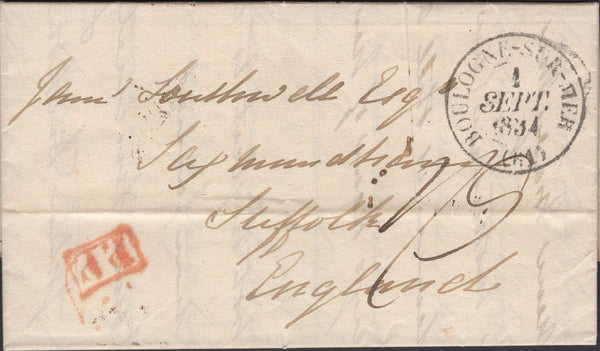 BOULOGNE-SUR-MER
1
SEPT.
1834
(61)
Jam.s Southwell Esq.r
Saxmundham
Suffolk
England